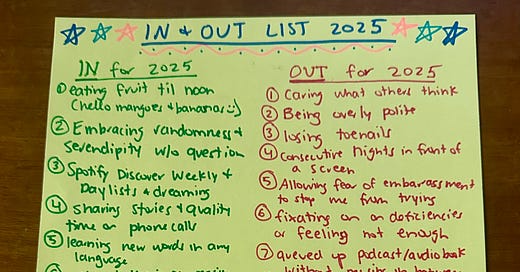 IN & OUT LIST 2025
IN for 2025
① eating fruit til noon
(hello mangoes & bananas :)
② Embracing randomness &
Serendipity w/o question
③ Spotify Discover Weekly &
Daylists & dreaming
④ sharing stories & quality
time on phone calls
⑤ learning new words in any
language
OUT for 2025
① Caring what others think
② Being overly polite
③ losing toenails
④ Consecutive nights in front of
a screen
⑤ Allowing fear of embarassment
to stop me from trying
⑥ fixating on my deficiencies
or feeling not enough
⑦ queued up podcast/audiobook
without